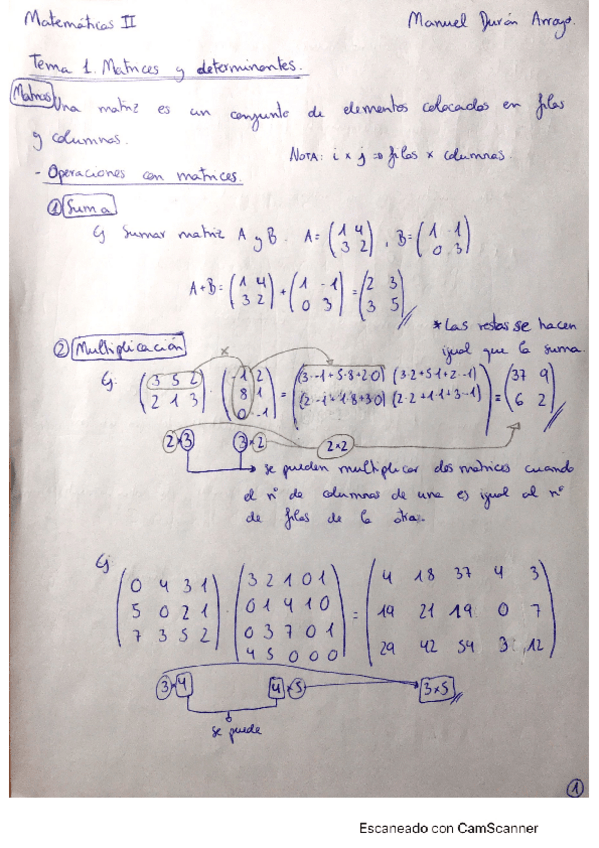 Matemáticas II Manuel Durán Arroyo.
Tema 1. Matrices y determinantes.
Matrices Una matriz es un conjunto de elementos colocados en filas
y columnas.
NOTA: i x j => filas x columnas.
- Operaciones con matrices.
① Suma
Ej Sumar matriz A y B. A = (1 4 / 3 2), B = (1 -1 / 0 3)
A+B = (1 4 / 3 2) + (1 -1 / 0 3) = (2 3 / 3 5)
* Las restas se hacen
igual que la suma.
② Multiplicación
x
Ej: (3 5 2 / 2 1 3) · (-1 2 / 8 1 / 0 -1) = ((3·-1+5·8+2·0) (3·2+5·1+2·-1) / (2·-1+1·8+3·0) (2·2+1·1+3·-1)) = (37 9 / 6 2)
2x3 3x2 2x2
se pueden multiplicar dos matrices cuando
el nº de columnas de una es igual al nº
de filas de la otra.
Ej:
(0 4 3 1 / 5 0 2 1 / 7 3 5 2) · (3 2 1 0 1 / 0 1 4 1 0 / 0 3 7 0 1 / 4 5 0 0 0) = (4 18 37 4 3 / 19 21 19 0 7 / 29 42 54 3 12)
3x4 4x5 3x5
se puede
1
Escaneado con CamScanner